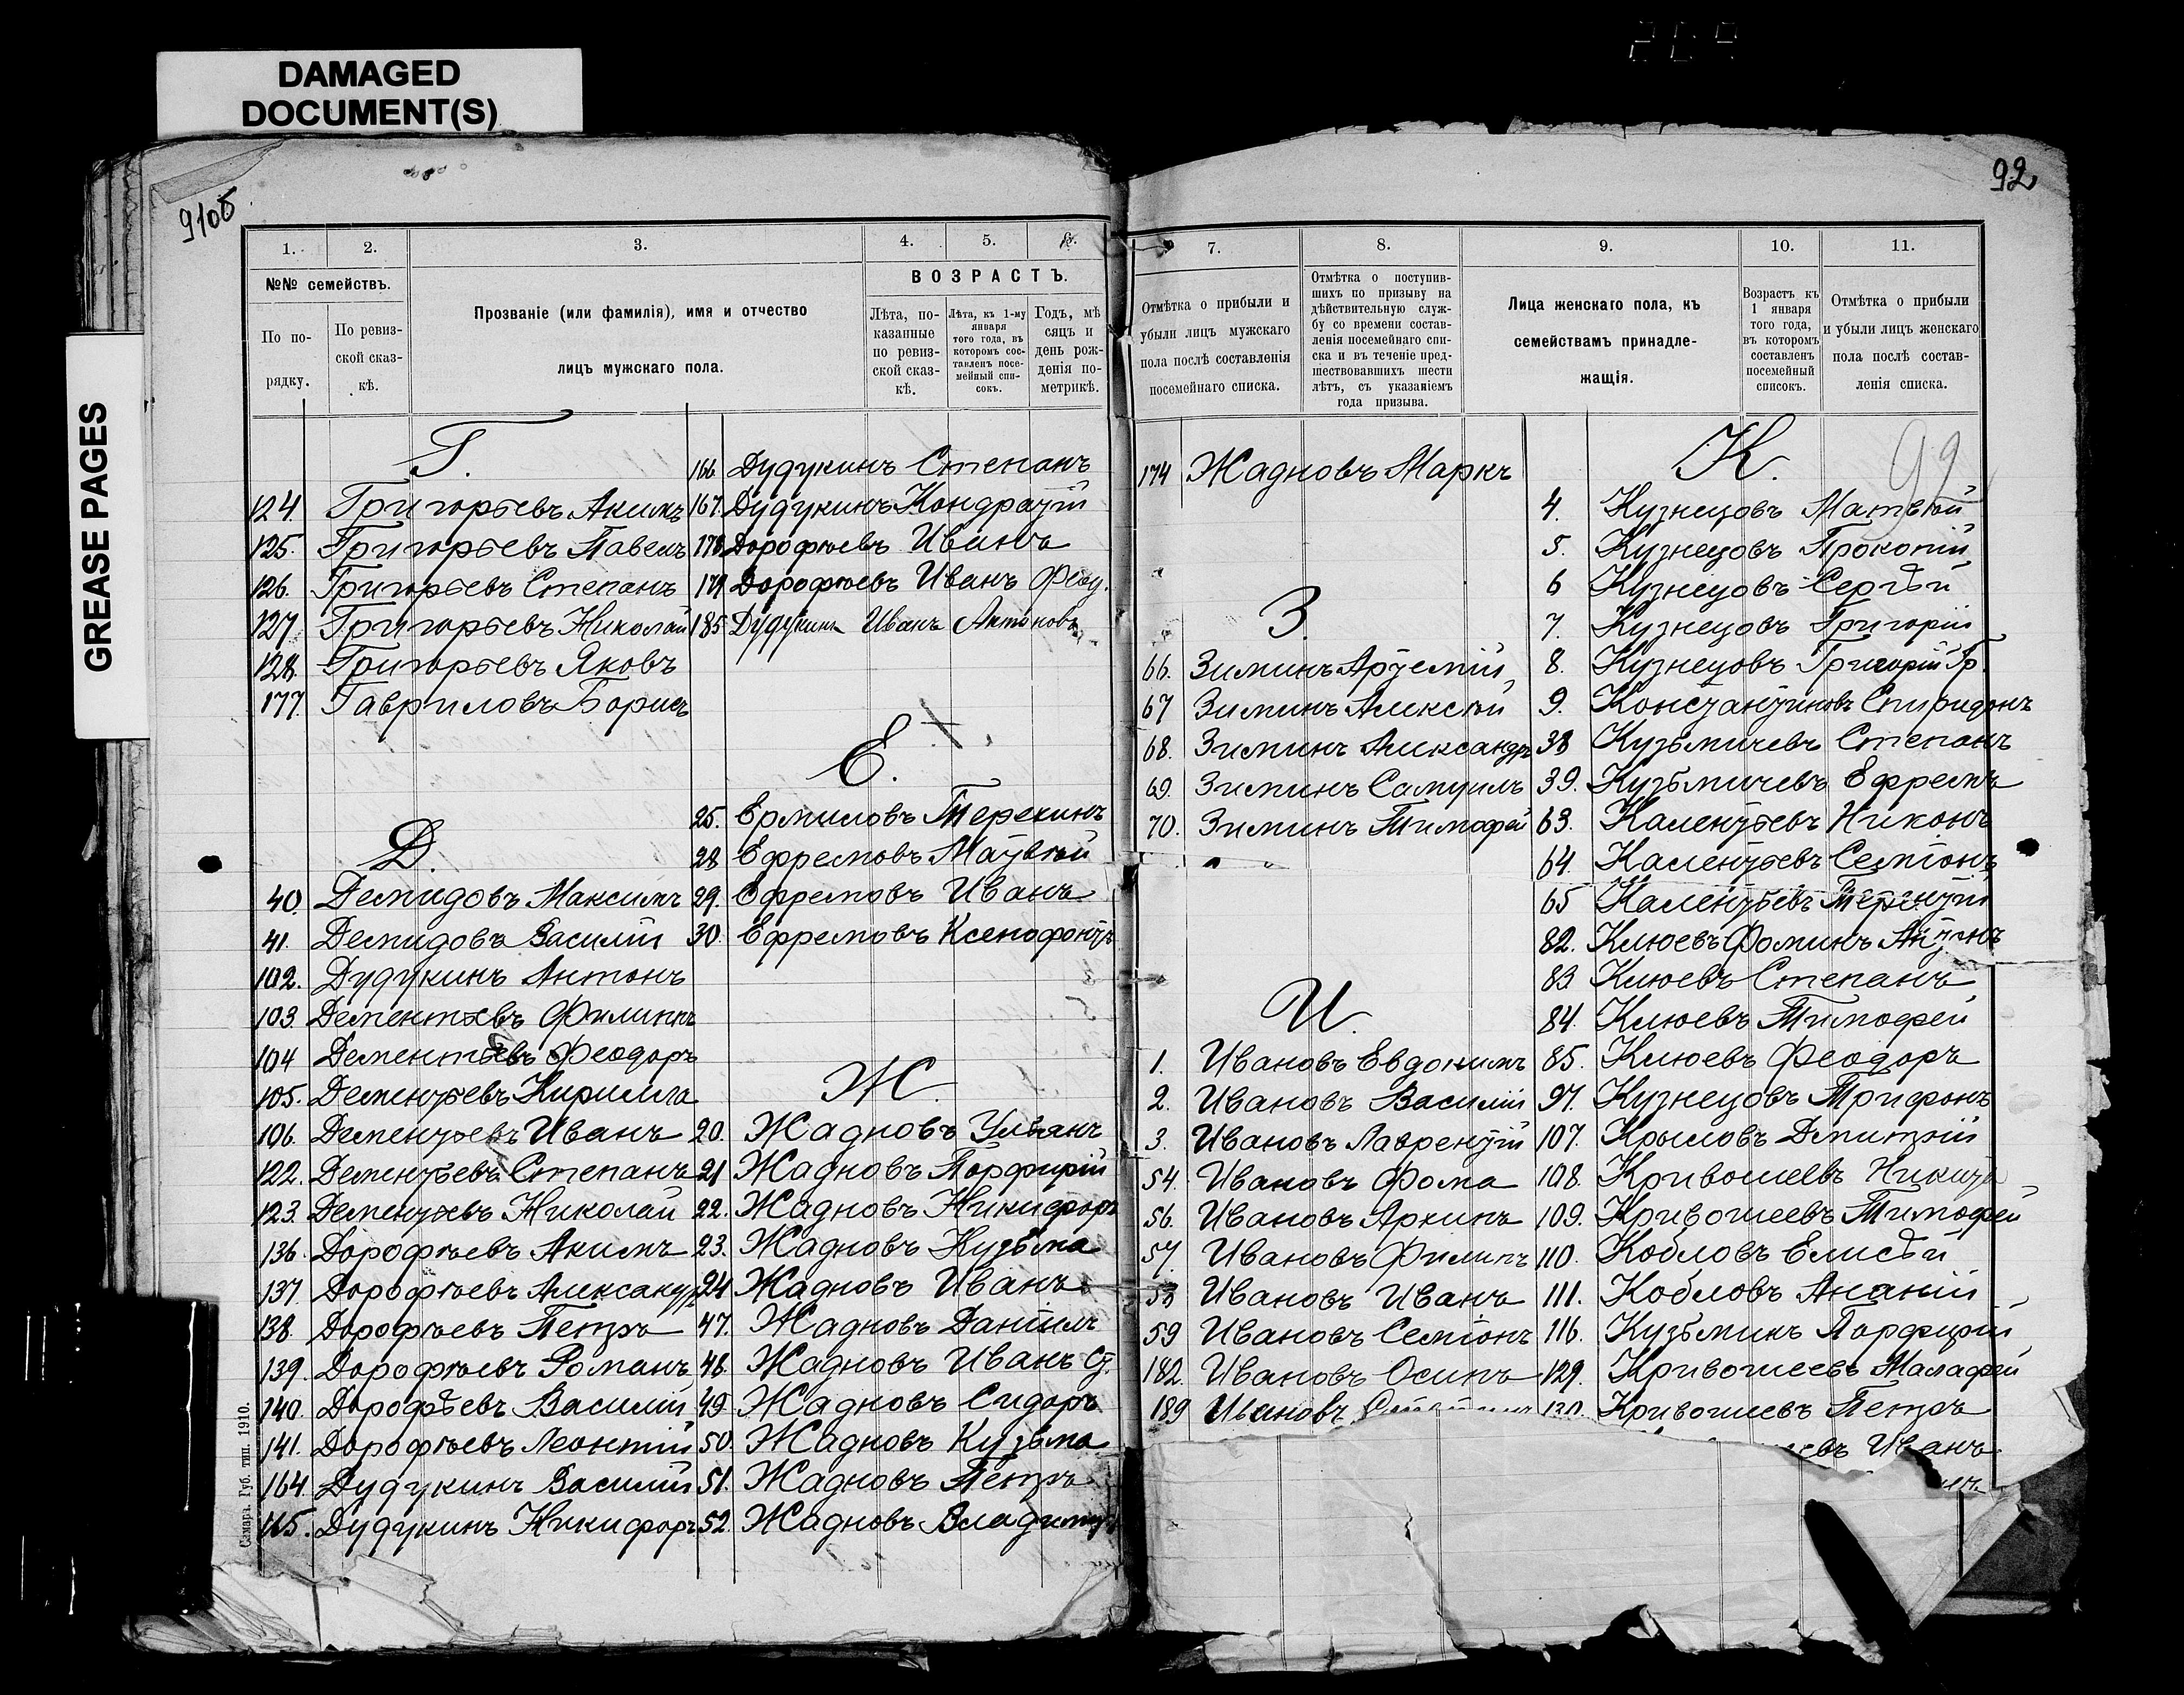 DAMAGED
DOCUMENT(S)
GREASE PAGES
91об
1.
2.
3.
4.
5.
6.
№№ семействъ.
По по-
рядку.
По ревиз-
ской сказ-
кѣ.
Прозваніе (или фамилія), имя и отчество
лицъ мужскаго пола.
ВОЗРАСТЪ.
Лѣта, по-
казанные
по ревиз-
ской сказ-
кѣ.
Лѣта, къ 1-му
января
того года, въ
которомъ сос-
тавленъ посе-
мейный спи-
сокъ.
Годъ, мѣ
сяцъ и
день рож-
денія по-
метрикѣ.
Г.
124. Григорьевъ Акимъ
125. Григорьевъ Павелъ
126. Григорьевъ Степанъ
127. Григорьевъ Николай
128. Григорьевъ Яковъ
177. Гавриловъ Борисъ
Д.
40. Демидовъ Максимъ
41. Демидовъ Василій
102. Дудукинъ Антонъ
103. Дементьевъ Филиппъ
104 Дементьевъ Феодоръ
105. Дементьевъ Кирилла
106. Дементьевъ Иванъ
122. Дементьевъ Степанъ
123. Дементьевъ Николай
136. Дорофѣевъ Акимъ
137. Дорофѣевъ Александръ
138. Дорофѣевъ Петръ
139. Дорофѣевъ Романъ
140. Дорофѣевъ Василій
141. Дорофѣевъ Леонтій
164. Дудукинъ Василій
165. Дудукинъ Никифоръ
166. Дудукинъ Степанъ
167. Дудукинъ Кондратій
178 Дорофѣевъ Иванъ
179 Дорофѣевъ Иванъ Феод.
185 Дудукинъ Иванъ Антоновъ
Е.
25. Ермиловъ Терекинъ
28 Ефремовъ Матвѣй
29. Ефремовъ Иванъ
30. Ефремовъ Ксенофонтъ
Ж
20. Жадновъ Ульянъ
21 Жадновъ Порфирій
22. Жадновъ Никифоръ
23. Жадновъ Кузьма
24 Жадновъ Иванъ
47. Жадновъ Даніилъ
48. Жадновъ Иванъ Ст.
49 Жадновъ Сидоръ
50. Жадновъ Кузьма
51. Жадновъ Петръ
52. Жадновъ Владиміръ
Самара. Губ. тип. 1910.
92
7.
8.
9.
10.
11.
Отмѣтка о прибыли и
убыли лицъ мужскаго
пола послѣ составленія
посемейнаго списка.
Отмѣтка о поступив-
шихъ по призыву на
дѣйствительную служ-
бу со времени состав-
ленія посемейнаго спи-
ска и въ теченіе пред-
шествовавшихъ шести
лѣтъ, съ указаніемъ
года призыва.
Лица женскаго пола, къ
семействамъ принадле-
жащія.
Возрастъ къ
1 января
того года,
въ которомъ
составленъ
посемейный
списокъ.
Отмѣтка о прибыли
и убыли лицъ женскаго
пола послѣ состав-
ленія списка.
92
174 Жадновъ Маркъ
З.
66. Зиминъ Артемій
67 Зиминъ Алексѣй
68. Зиминъ Александръ
69. Зиминъ Самуилъ
70. Зиминъ Тимофей
И.
1. Ивановъ Евдокимъ
2. Ивановъ Василій
3. Ивановъ Лаврентій
54. Ивановъ Фома
56. Ивановъ Архипъ
57. Ивановъ Филипъ
58 Ивановъ Иванъ
59 Ивановъ Семіонъ
182. Ивановъ Осипъ
189 Ивановъ
К.
4. Кузнецовъ Матвѣй
5. Кузнецовъ Прокопій
6 Кузнецовъ Сергѣй
7. Кузнецовъ Григорій
8. Кузнецовъ Григорій Гр.
9. Константиновъ Спиридонъ
38 Кузьмичевъ Степанъ
39. Кузьмичевъ Ефремъ
63. Калентьевъ Никонъ
64. Калентьевъ Семіонъ
65 Калентьевъ Терентій
82. Клюевъ Фоминъ Антонъ
83 Клюевъ Степанъ
84. Клюевъ Тимофей
85. Клюевъ Феодоръ
97. Кузнецовъ Трифонъ
107. Крыловъ Дмитрій
108. Кривошеевъ Никита
109. Кривошеевъ Тимофей
110. Кобловъ Елисѣй
111. Кобловъ Ананій
116. Кузьминъ Порфирій
129. Кривошеевъ Малафей
130. Кривошеевъ Петръ
евъ Иванъ